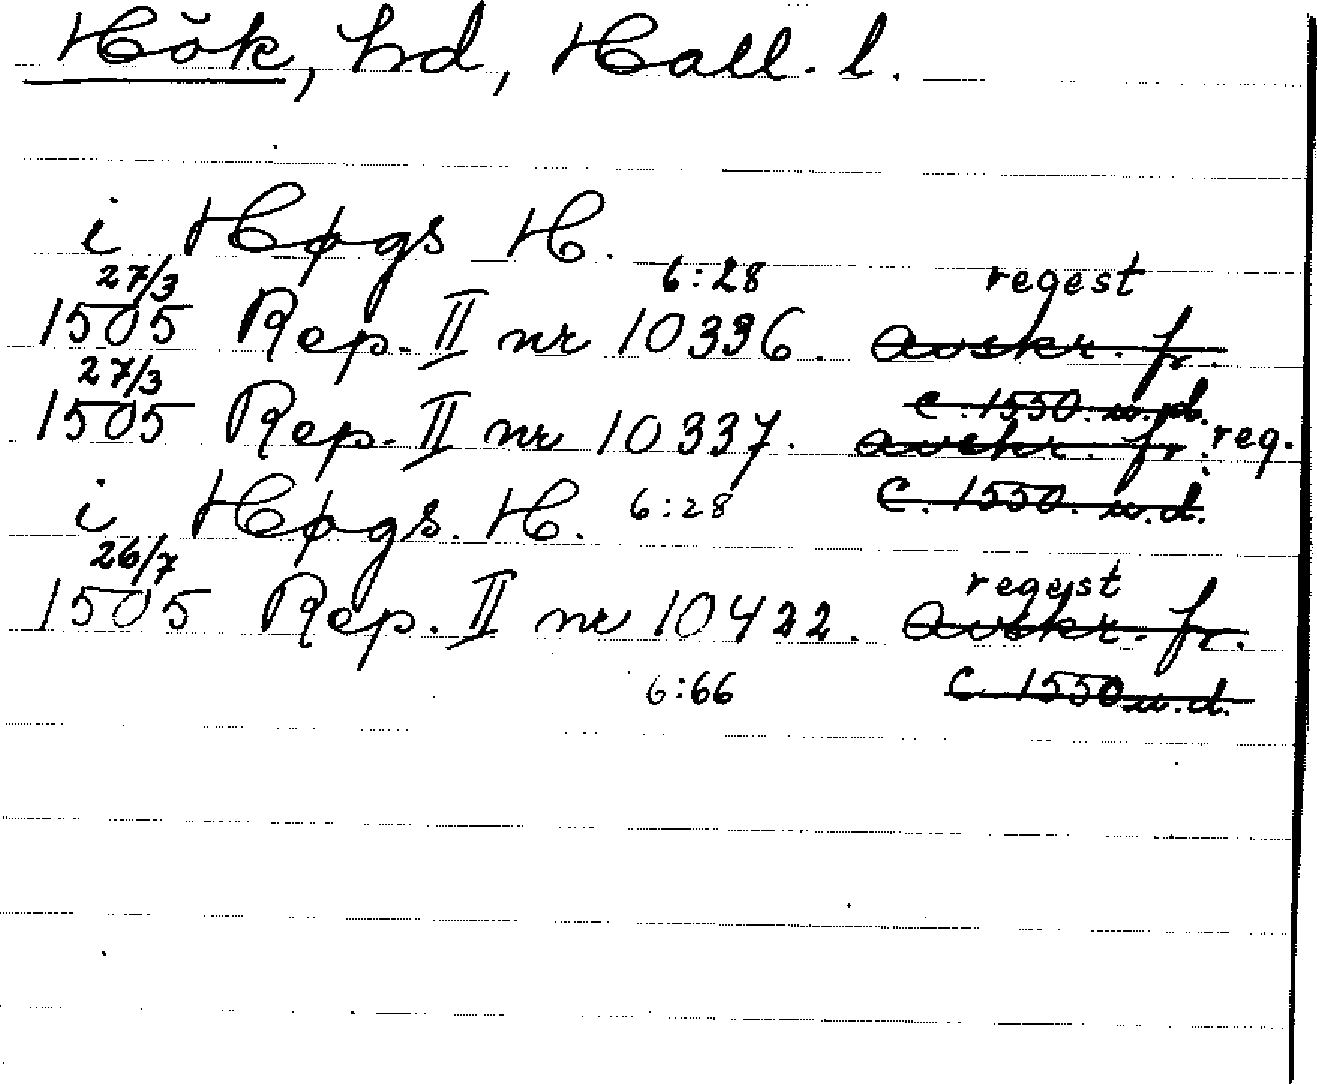 Hök, hd, Hall. l.
i Høgs H.
27/3 6:28 regest
1505 Rep. II nr 10336. avskr. fr.
27/3 c. 1550. u.d.
1505 Rep. II nr 10337. avskr. fr. reg.
i Høgs. H. 6:28 c. 1550. u.d.
26/7 regest
1505 Rep. II nr 10422. avskr. fr.
6:66 c. 1550 u.d.